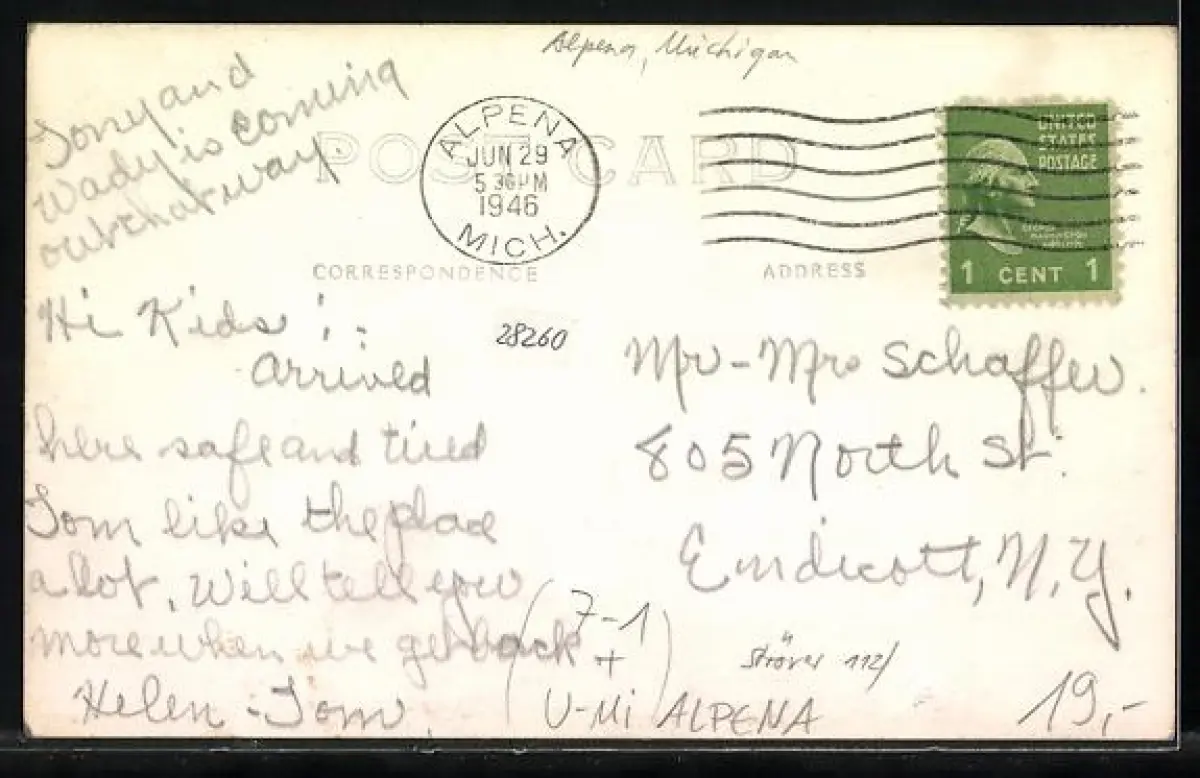 Alpena, Michigan
Tony and
Wady is coming
out that way.
POST CARD
ALPENA
JUN 29
5 30 PM
1946
MICH.
UNITED
STATES
POSTAGE
GEORGE
WASHINGTON
1 CENT 1
CORRESPONDENCE
ADDRESS
Hi Kids;:
Arrived
here safe and tired
Tom like the place
a lot. Will tell you
more when we get back
Helen - Tom
28260
Mr - Mrs Schaffer.
805 North St.
Endicott, N.Y.
(7-1
+)
U-Mi ALPENA
Ströver 112/
19,-